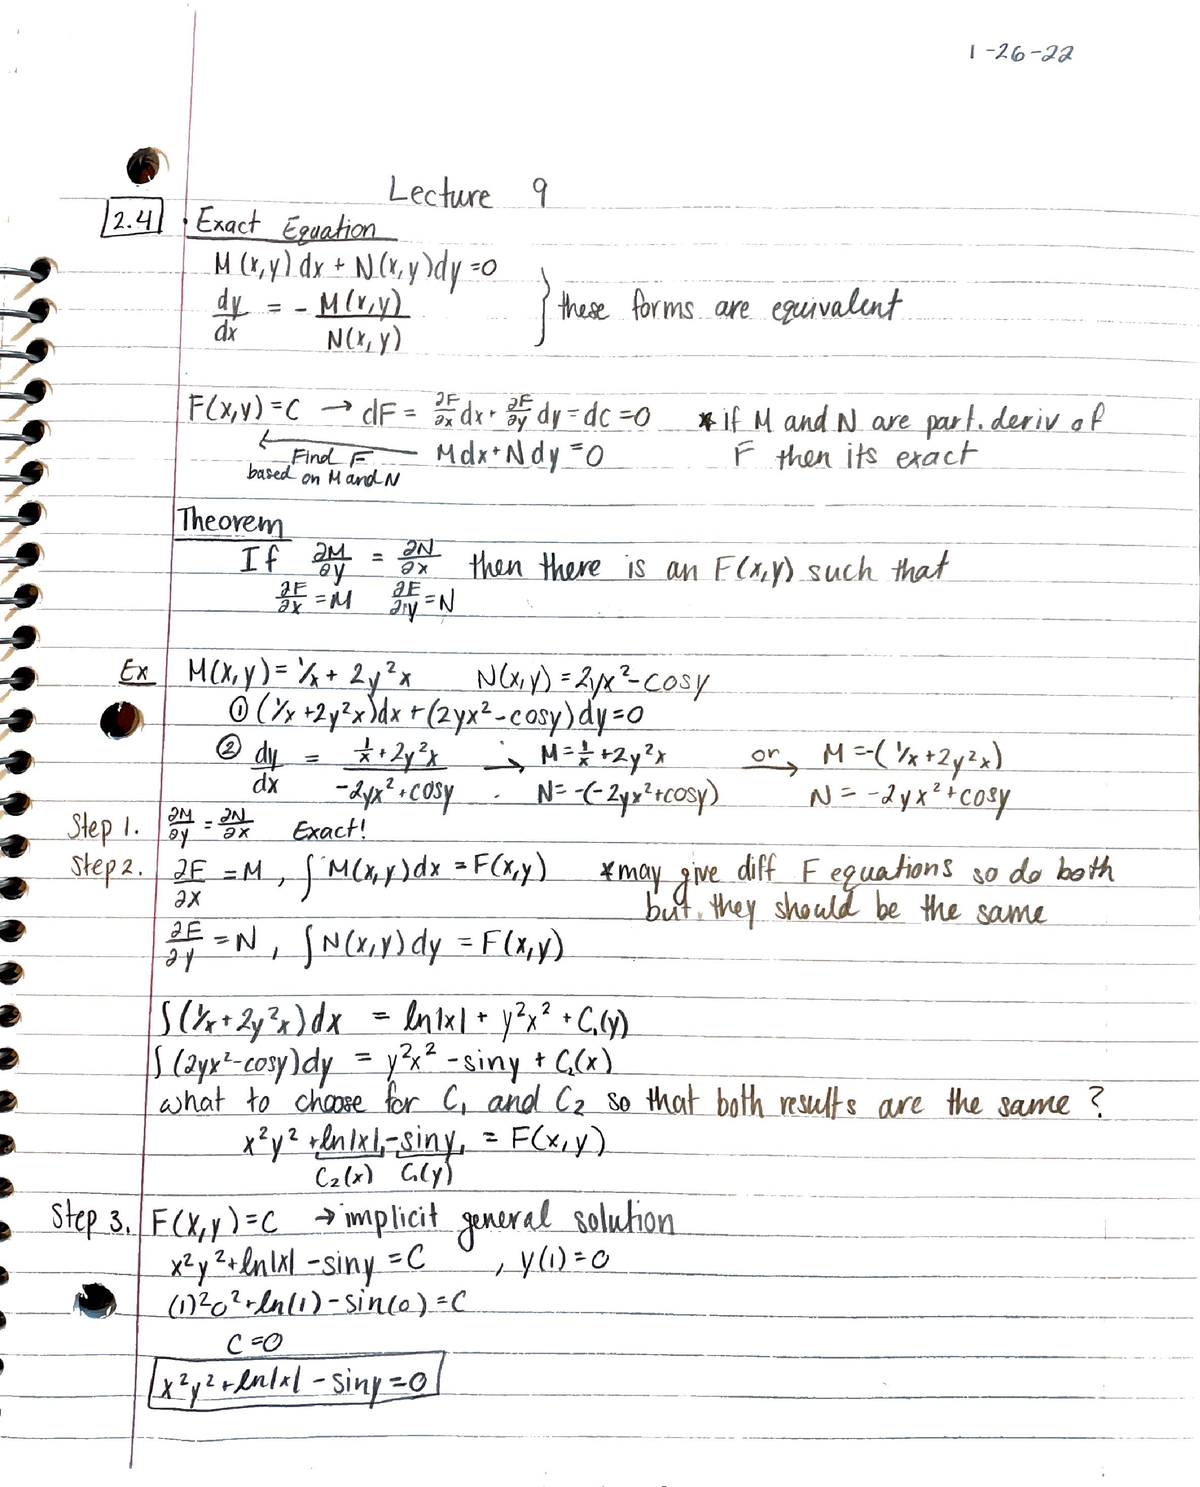 1-26-22
Lecture 9
2.4 · Exact Equation
M(x,y)dx + N(x,y)dy=0
dy/dx = - M(x,y)/N(x,y) } these forms are equivalent
F(x,y)=C → dF = ∂F/∂x dx + ∂F/∂y dy = dc = 0 * if M and N are part. deriv of
← Find F Mdx+Ndy=0 F then its exact
based on M and N
Theorem
If ∂M/∂y = ∂N/∂x then there is an F(x,y) such that
∂F/∂x = M ∂F/∂y = N
Ex M(x,y)= 1/x + 2y²x N(x,y)=2yx²-cosy
① (1/x +2y²x)dx + (2yx²-cosy)dy=0
② dy/dx = (1/x+2y²x)/(-2yx²+cosy) → M=1/x+2y²x or → M=-(1/x+2y²x)
N= -(-2yx²+cosy) N= -2yx²+cosy
Step 1. ∂M/∂y = ∂N/∂x Exact!
Step 2. ∂F/∂x = M, ∫M(x,y)dx = F(x,y) *may give diff F equations so do both
but, they should be the same
∂F/∂y = N, ∫N(x,y)dy = F(x,y)
∫(1/x+2y²x)dx = ln|x| + y²x² + C₁(y)
∫(2yx²-cosy)dy = y²x² - siny + C₂(x)
what to choose for C₁ and C₂ so that both results are the same?
x²y² + ln|x| - siny = F(x,y)
C₂(x) C₁(y)
Step 3. F(x,y)=C → implicit general solution
x²y²+ln|x| -siny = C , y(1)=0
(1)²0²+ln(1)-sin(0)=C
C=0
x²y²+ln|x| -siny=0